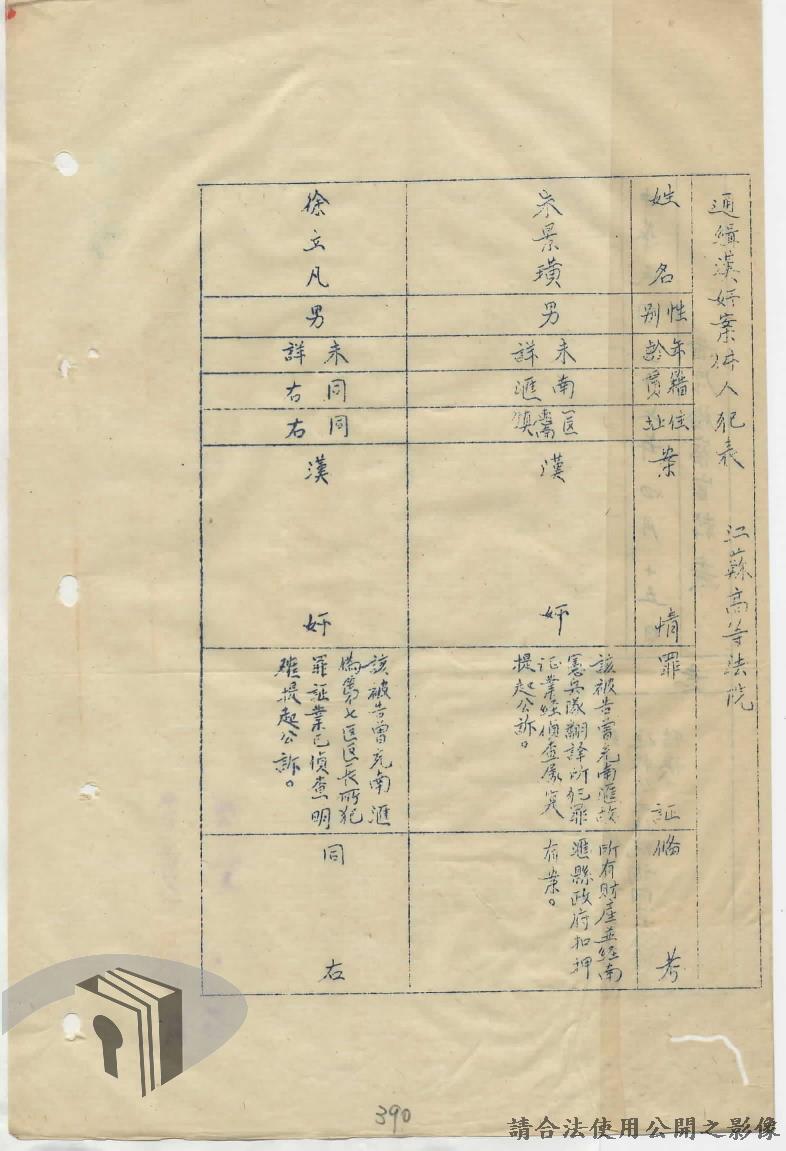 通緝漢奸案件人犯表 江蘇高等法院
姓名 性別 年齡 籍貫 住址 案情 罪証 備考
宋景璜 男 未詳 南滙 鎮 漢奸
該被告曾充南滙敌
憲兵隊翻譯所犯罪
证業經偵查屬寔
提起公訴。
所有財產並經南
滙縣政府扣押
有案。
徐立凡 男 未詳 同右 同右 漢奸
該被告曾充南滙
偽第七區區長所犯
罪証業已偵查明
確提起公訴。
同右
390
請合法使用公開之影像